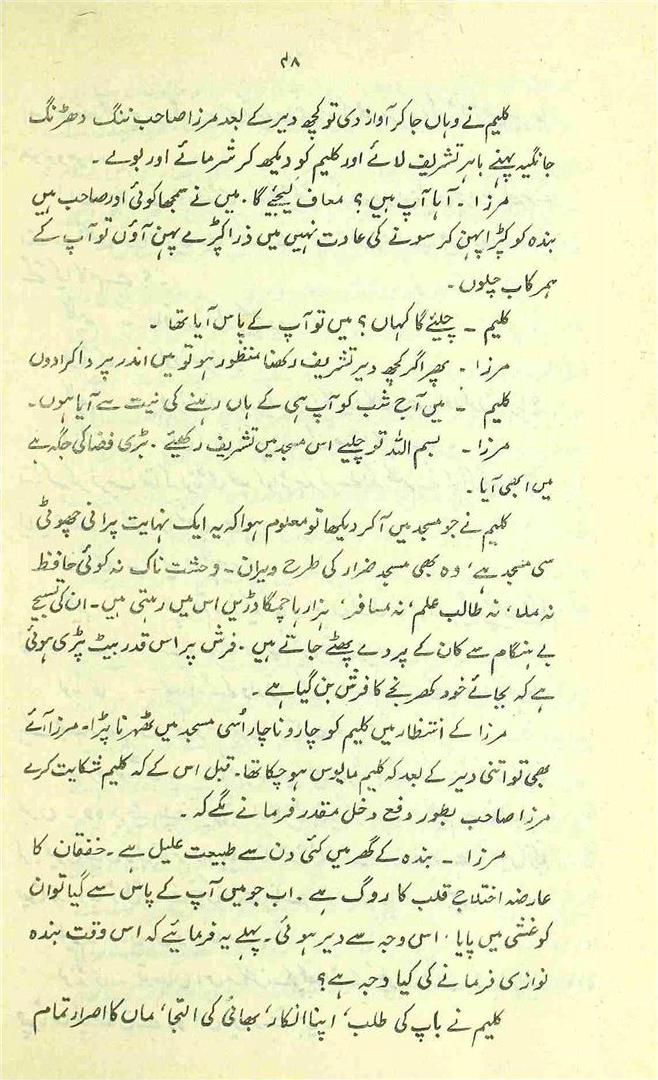 ۴۸
کلیم نے وہاں جا کر آواز دی تو کچھ دیر کے بعد مرزا صاحب ننگ دھڑنگ
جانگیہ پہنے باہر تشریف لائے اور کلیم کو دیکھ کر شرمائے اور بولے ۔
مرزا ۔ آہا آپ ہیں ؟ معاف کیجئے گا ۔ میں نے سمجھا کوئی اور صاحب ہیں
بندہ کو کپڑا پہن کر سونے کی عادت نہیں میں ذرا کپڑے پہن آؤں تو آپ کے
ہمرکاب چلوں ۔
کلیم ۔ چلیئے گا کہاں ؟ میں تو آپ کے پاس آیا تھا ۔
مرزا ۔ پھر اگر کچھ دیر تشریف رکھنا منظور ہو تو میں اندر پردا کرا دوں
کلیم ۔ میں آج شب کو آپ ہی کے ہاں رہنے کی نیت سے آیا ہوں ۔
مرزا ۔ بسم اللہ تو چلیے اس مسجد میں تشریف رکھیئے ۔ بڑی فضا کی جگہ ہے
میں ابھی آیا ۔
کلیم نے جو مسجد میں آ کر دیکھا تو معلوم ہوا کہ یہ ایک نہایت پرانی چھوٹی
سی مسجد ہے ، وہ بھی مسجد ضرار کی طرح ویران ۔ وحشت ناک نہ کوئی حافظ
نہ ملا ، نہ طالب علم ، نہ مسافر ، ہزارہا چمگادڑیں اس میں رہتی ہیں ۔ ان کی تسبیح
بے ہنگام سے کان کے پردے پھٹے جاتے ہیں ۔ فرش پر اس قدر بیٹ پڑی ہوئی
ہے کہ بجائے خود کھرنجے کا فرش بن گیا ہے ۔
مرزا کے انتظار میں کلیم کو چار و ناچار اُسی مسجد میں ٹھہرنا پڑا ۔ مرزا آئے
بھی تو اتنی دیر کے بعد کہ کلیم مایوس ہو چکا تھا ۔ قبل اس کے کہ کلیم شکایت کرے
مرزا صاحب بطور دفع دخل مقدر فرمانے لگے کہ ۔
مرزا ۔ بندہ کے گھر میں کئی دن سے طبیعت علیل ہے ۔ خفقان کا
عارضہ اختلاج قلب کا روگ ہے ۔ اب جو میں آپ کے پاس سے گیا تو ان
کو غشی میں پایا ، اس وجہ سے دیر ہوئی ۔ پہلے یہ فرمائیے کہ اس وقت بندہ
نوازی فرمانے کی کیا وجہ ہے ؟
کلیم نے باپ کی طلب ، اپنا انکار ، بھائی کی التجا ، ماں کا اصرار تمام